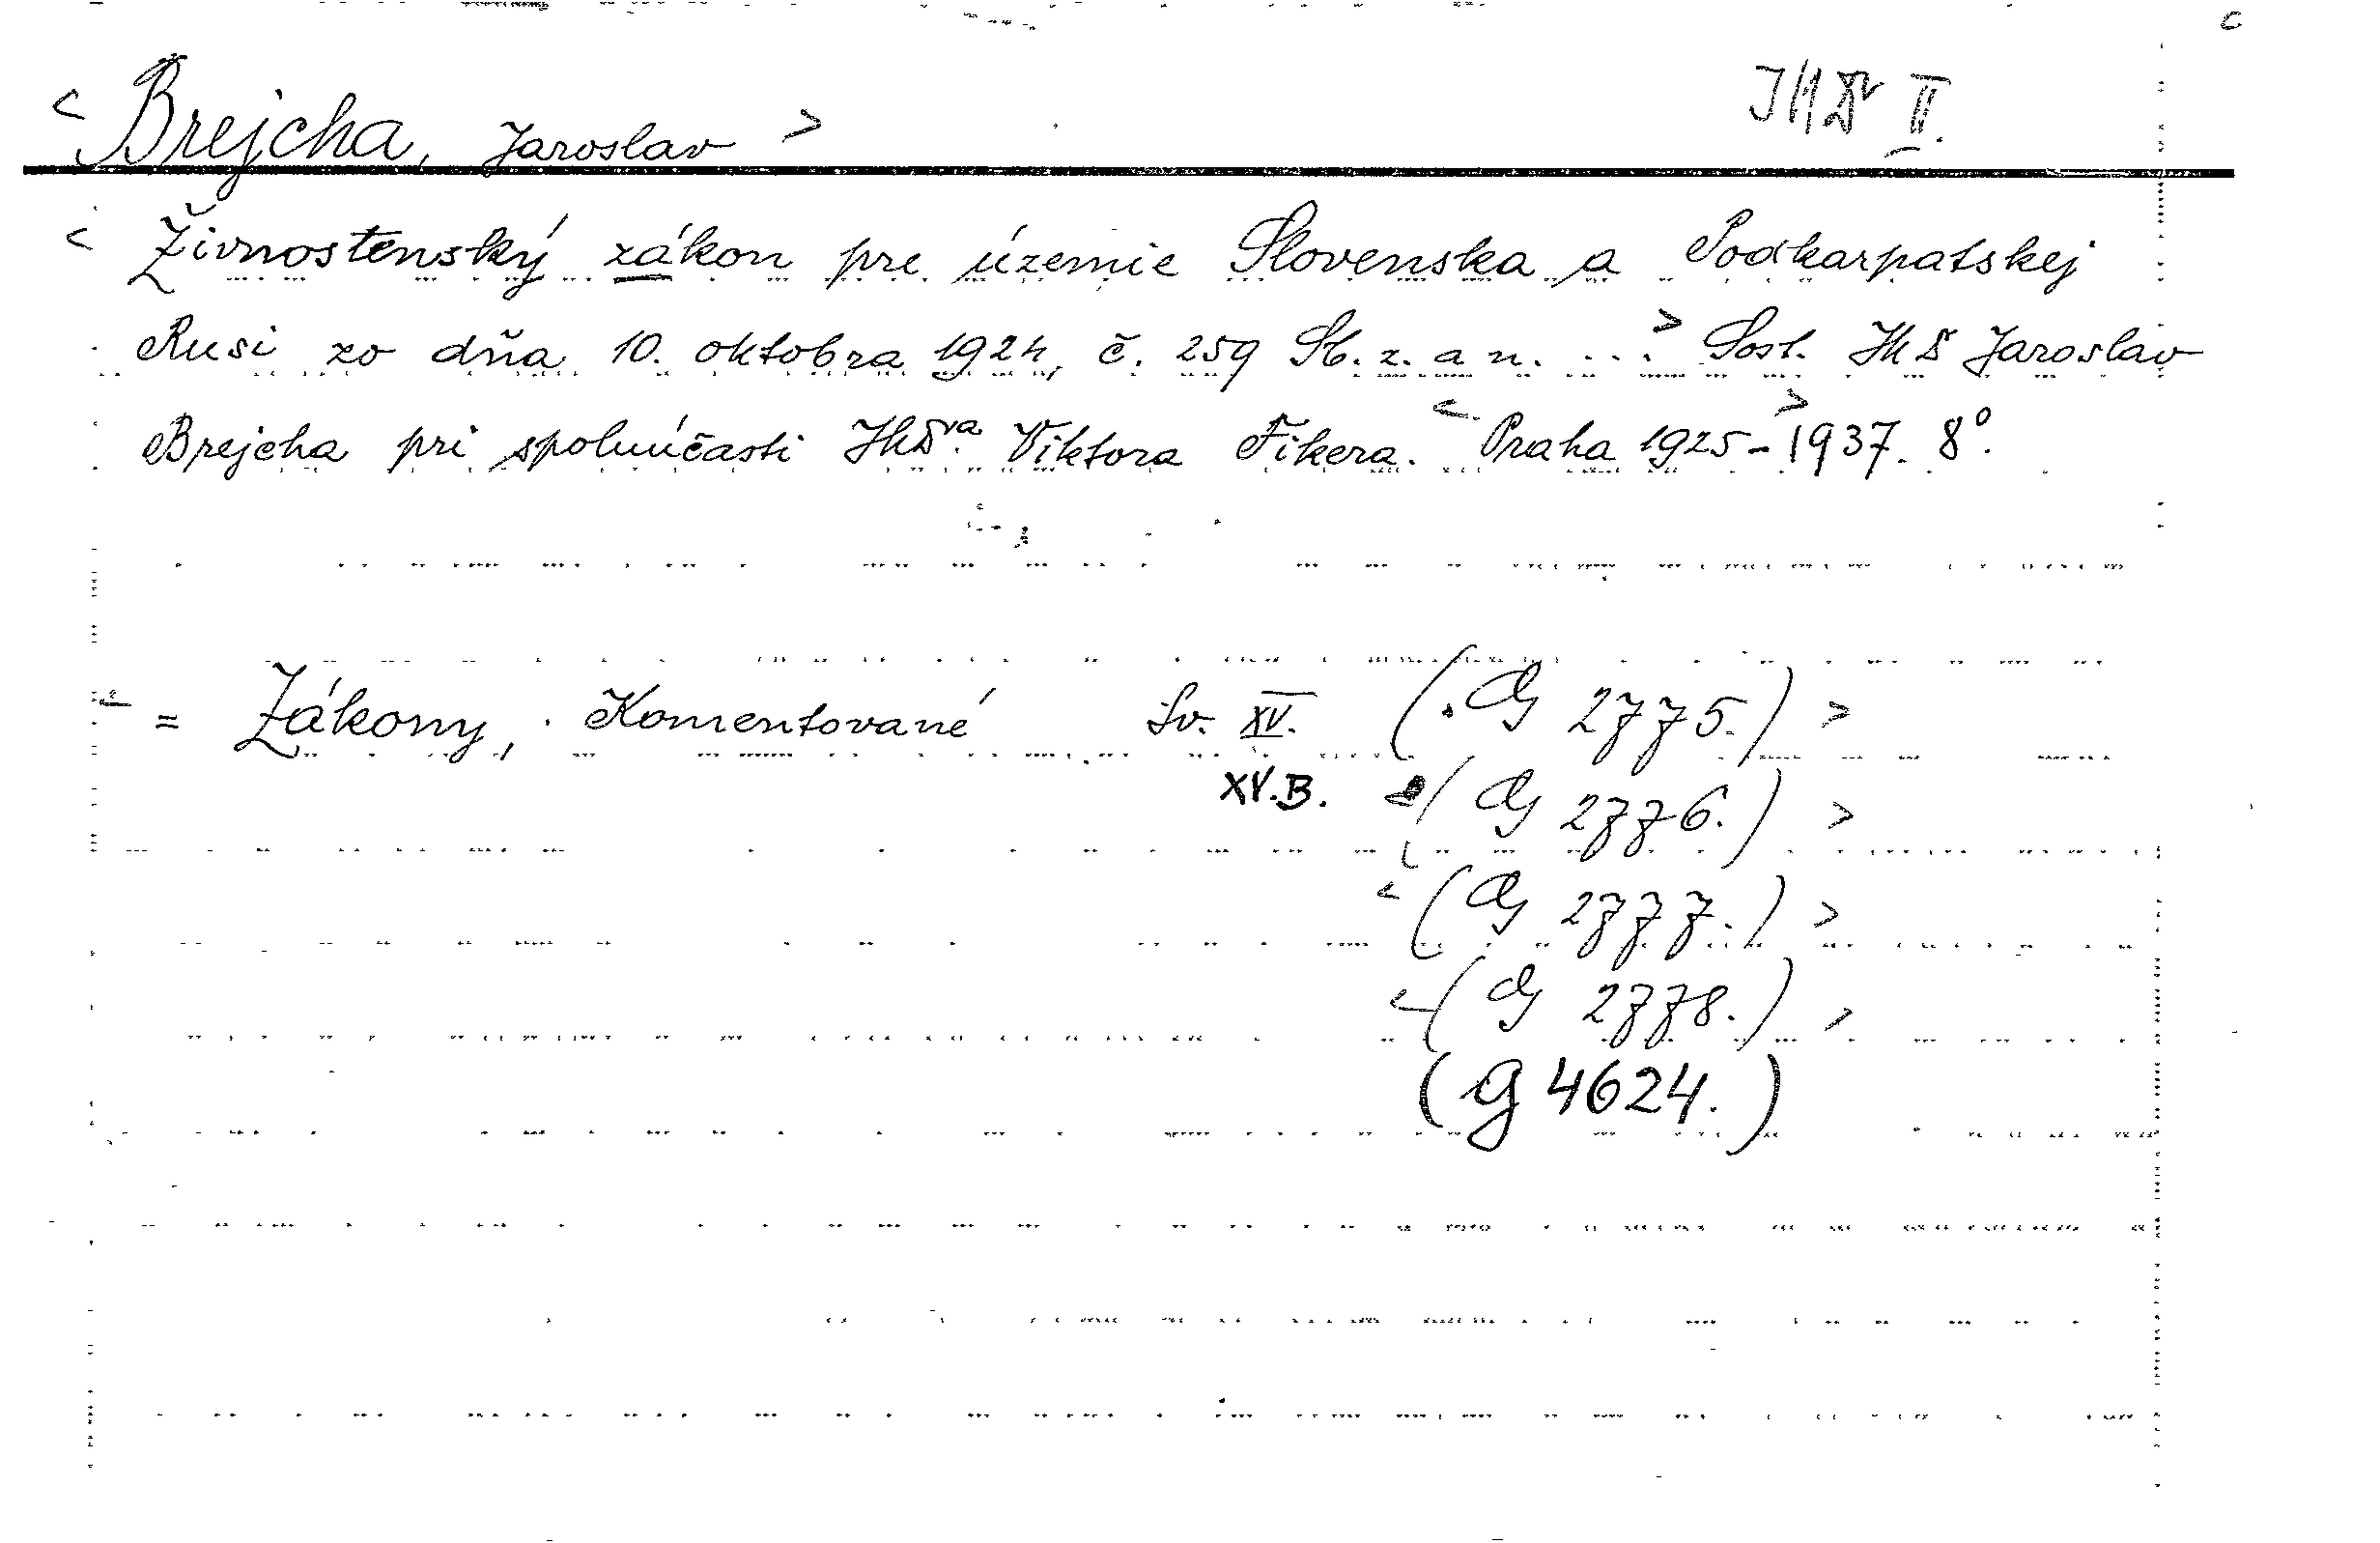 < Brejcha, Jaroslav > JUDr II.
< Živnostenský zákon pre územie Slovenska a Podkarpatskej
Rusi zo dňa 10. oktobra 1924, č. 259 Sb. z. a n. ... > Sost. JUD Jaroslav
Brejcha pri spoluúčasti JUDra. Viktora Fikera. < Praha 1925 - > 1937. 8°.
< = Zákony, Komentované Sv. XV. (G 2775.) >
XV.B. (G 2776.) >
< (G 2777.) >
< (G 2778.) >
(G 4624.)